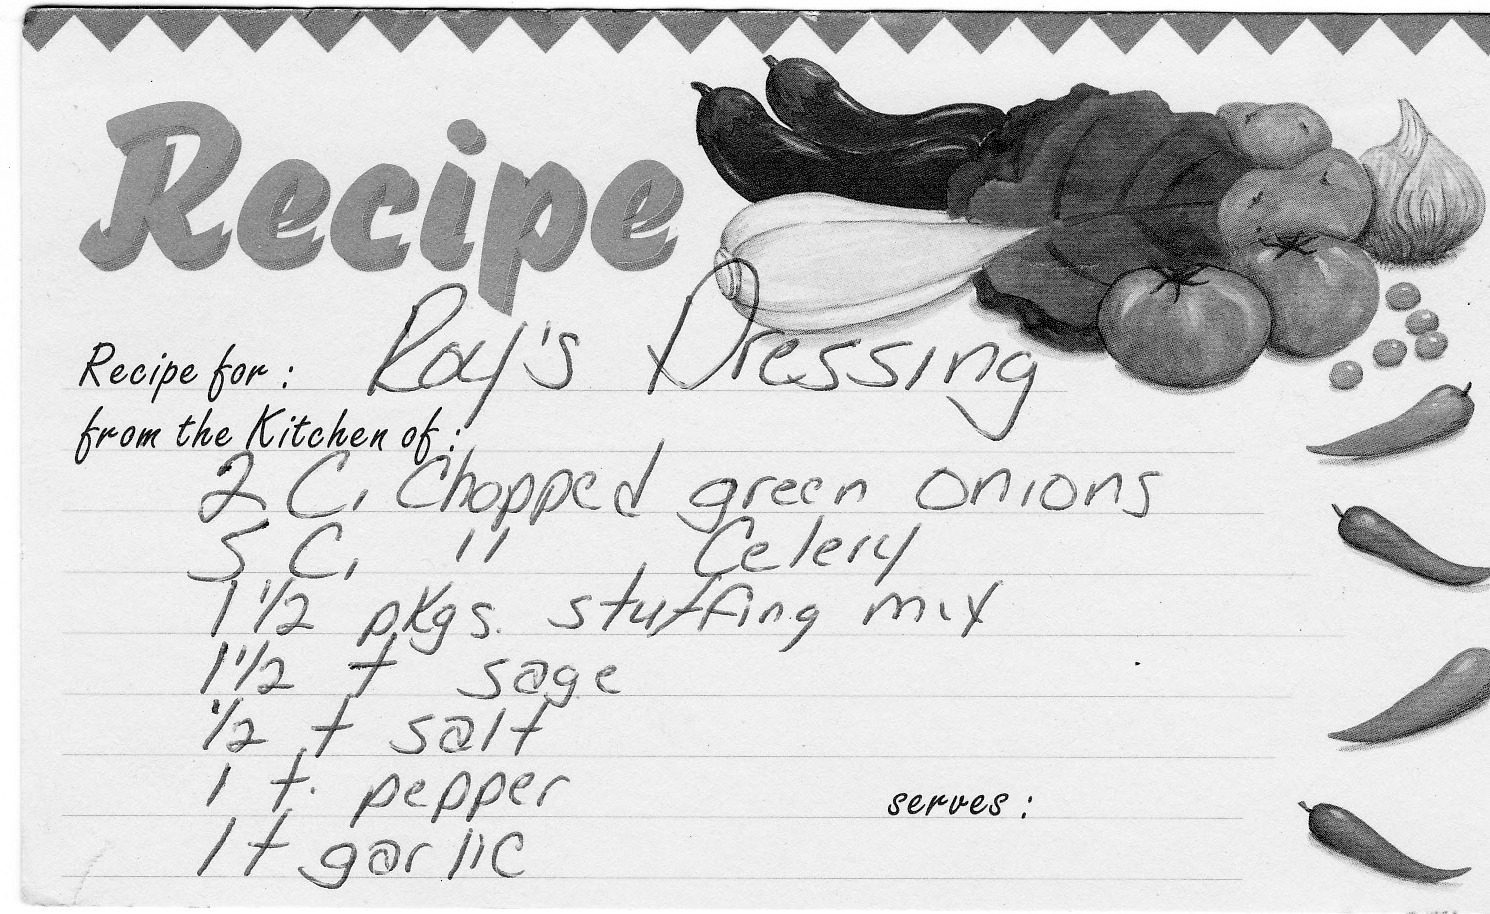 Recipe
Recipe for: Roy's Dressing
from the Kitchen of:
2 C, Chopped green onions
5 C, " Celery
1 1/2 pkgs. stuffing mix
1 1/2 t sage
1/2 t salt
1 t. pepper
serves:
1 t garlic